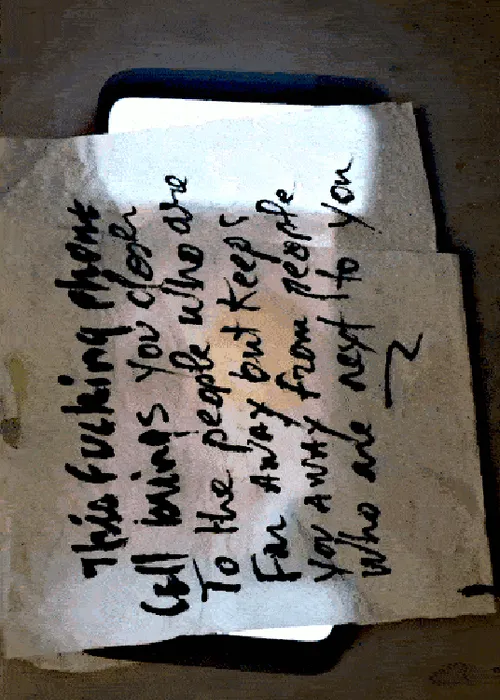 This fucking phone
Cell brings you closer
To the people who are
Far away but keeps
You away from people
who are next to you